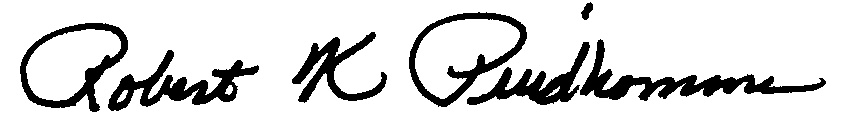 Robert K Prudhomme